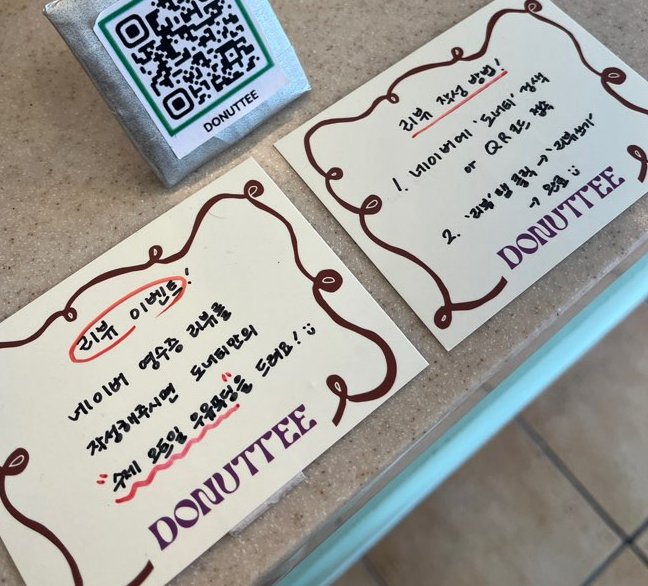 DONUTTEE
리뷰 이벤트!
네이버 영수증 리뷰를
작성해주시면 도너티만의
"수제 오트밀 우유푸딩"을 드려요! :)
DONUTTEE
리뷰 작성 방법!
1. 네이버에 '도너티' 검색
or QR코드 접속
2. '리뷰' 탭 클릭 → '리뷰쓰기'
→ 완료 :)
DONUTTEE